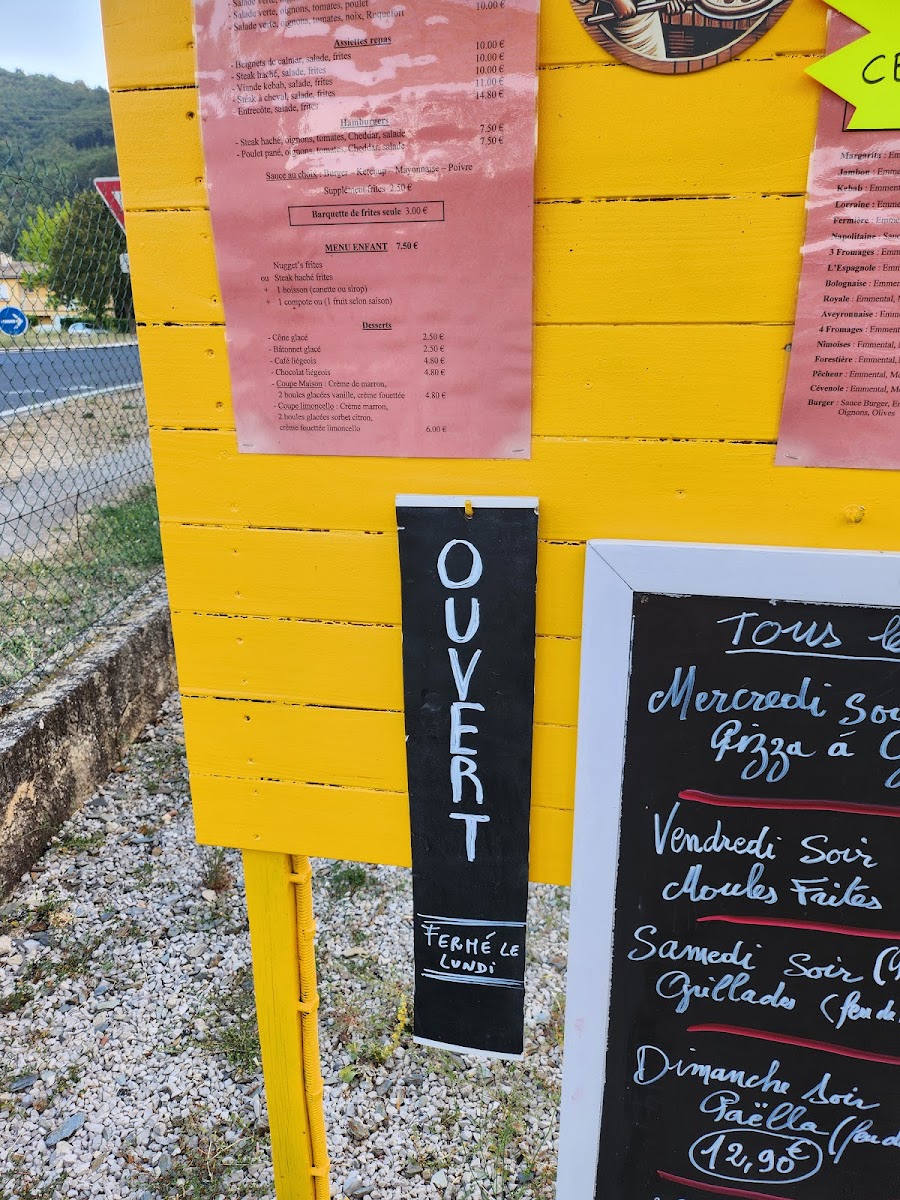 - Salade verte, oignons, tomates, poulet
- Salade verte, oignons, tomates, noix, Roquefort 10.00 €
Assiettes repas
- Beignets de calmar, salade, frites 10.00 €
- Steak haché, salade, frites 10.00 €
- Viande kebab, salade, frites 10.00 €
- Steak à cheval, salade, frites 11.00 €
- Entrecôte, salade, frites 14.80 €
Hamburgers
- Steak haché, oignons, tomates, Cheddar, salade 7.50 €
- Poulet pané, oignons, tomates, Cheddar, salade 7.50 €
Sauce au choix : Burger - Ketchup - Mayonnaise - Poivre
Supplément frites 2.50 €
Barquette de frites seule 3.00 €
MENU ENFANT 7.50 €
Nugget's frites
ou Steak haché frites
+ 1 boisson (canette ou sirop)
+ 1 compote ou (1 fruit selon saison)
Desserts
- Cône glacé 2.50 €
- Bâtonnet glacé 2.50 €
- Café liégeois 4.80 €
- Chocolat liégeois 4.80 €
- Coupe Maison : Crème de marron,
2 boules glacées vanille, crème fouettée 4.80 €
- Coupe limoncello : Crème marron,
2 boules glacées sorbet citron,
crème fouettée limoncello 6.00 €
CE
Margarita : Em
Jambon : Emme
Kebab : Emment
Lorraine : Emme
Fermière : Emme
Napolitaine : Sauc
3 Fromages : Emm
L'Espagnole : Emm
Bolognaise : Emmen
Royale : Emmental, M
Aveyronnaise : Emm
4 Fromages : Emment
Nimoises : Emmental,
Forestière : Emmental,
Pêcheur : Emmental, Mo
Cévenole : Emmental, Mo
Burger : Sauce Burger, E
Oignons, Olives
OUVERT
FERMÉ LE
LUNDI
Tous le
Mercredi Soi
Pizza à
Vendredi Soir
Moules Frites
Samedi Soir
Grillades (feu de
Dimanche Soir
Paëlla (feu d
12,90€